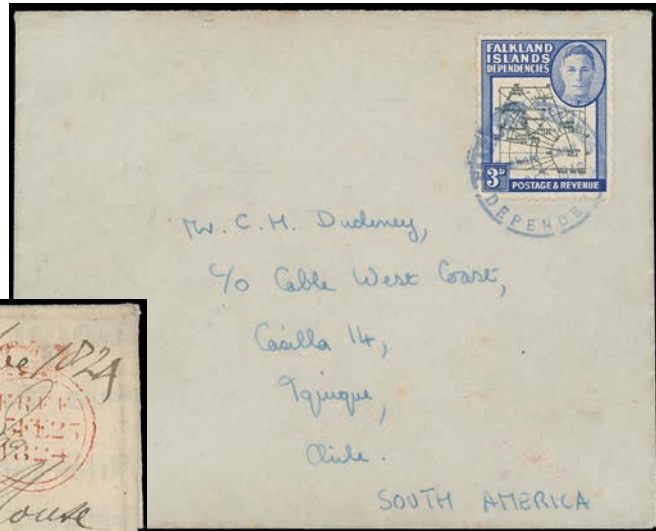 FALKLAND
ISLANDS
DEPENDENCIES
3D
POSTAGE & REVENUE
DEPENDE
Mr. C. H. Dudeney,
c/o Cable West Coast,
Casilla 14,
Iquique,
Chile.
SOUTH AMERICA
1824
FREE
FE25
1824
House